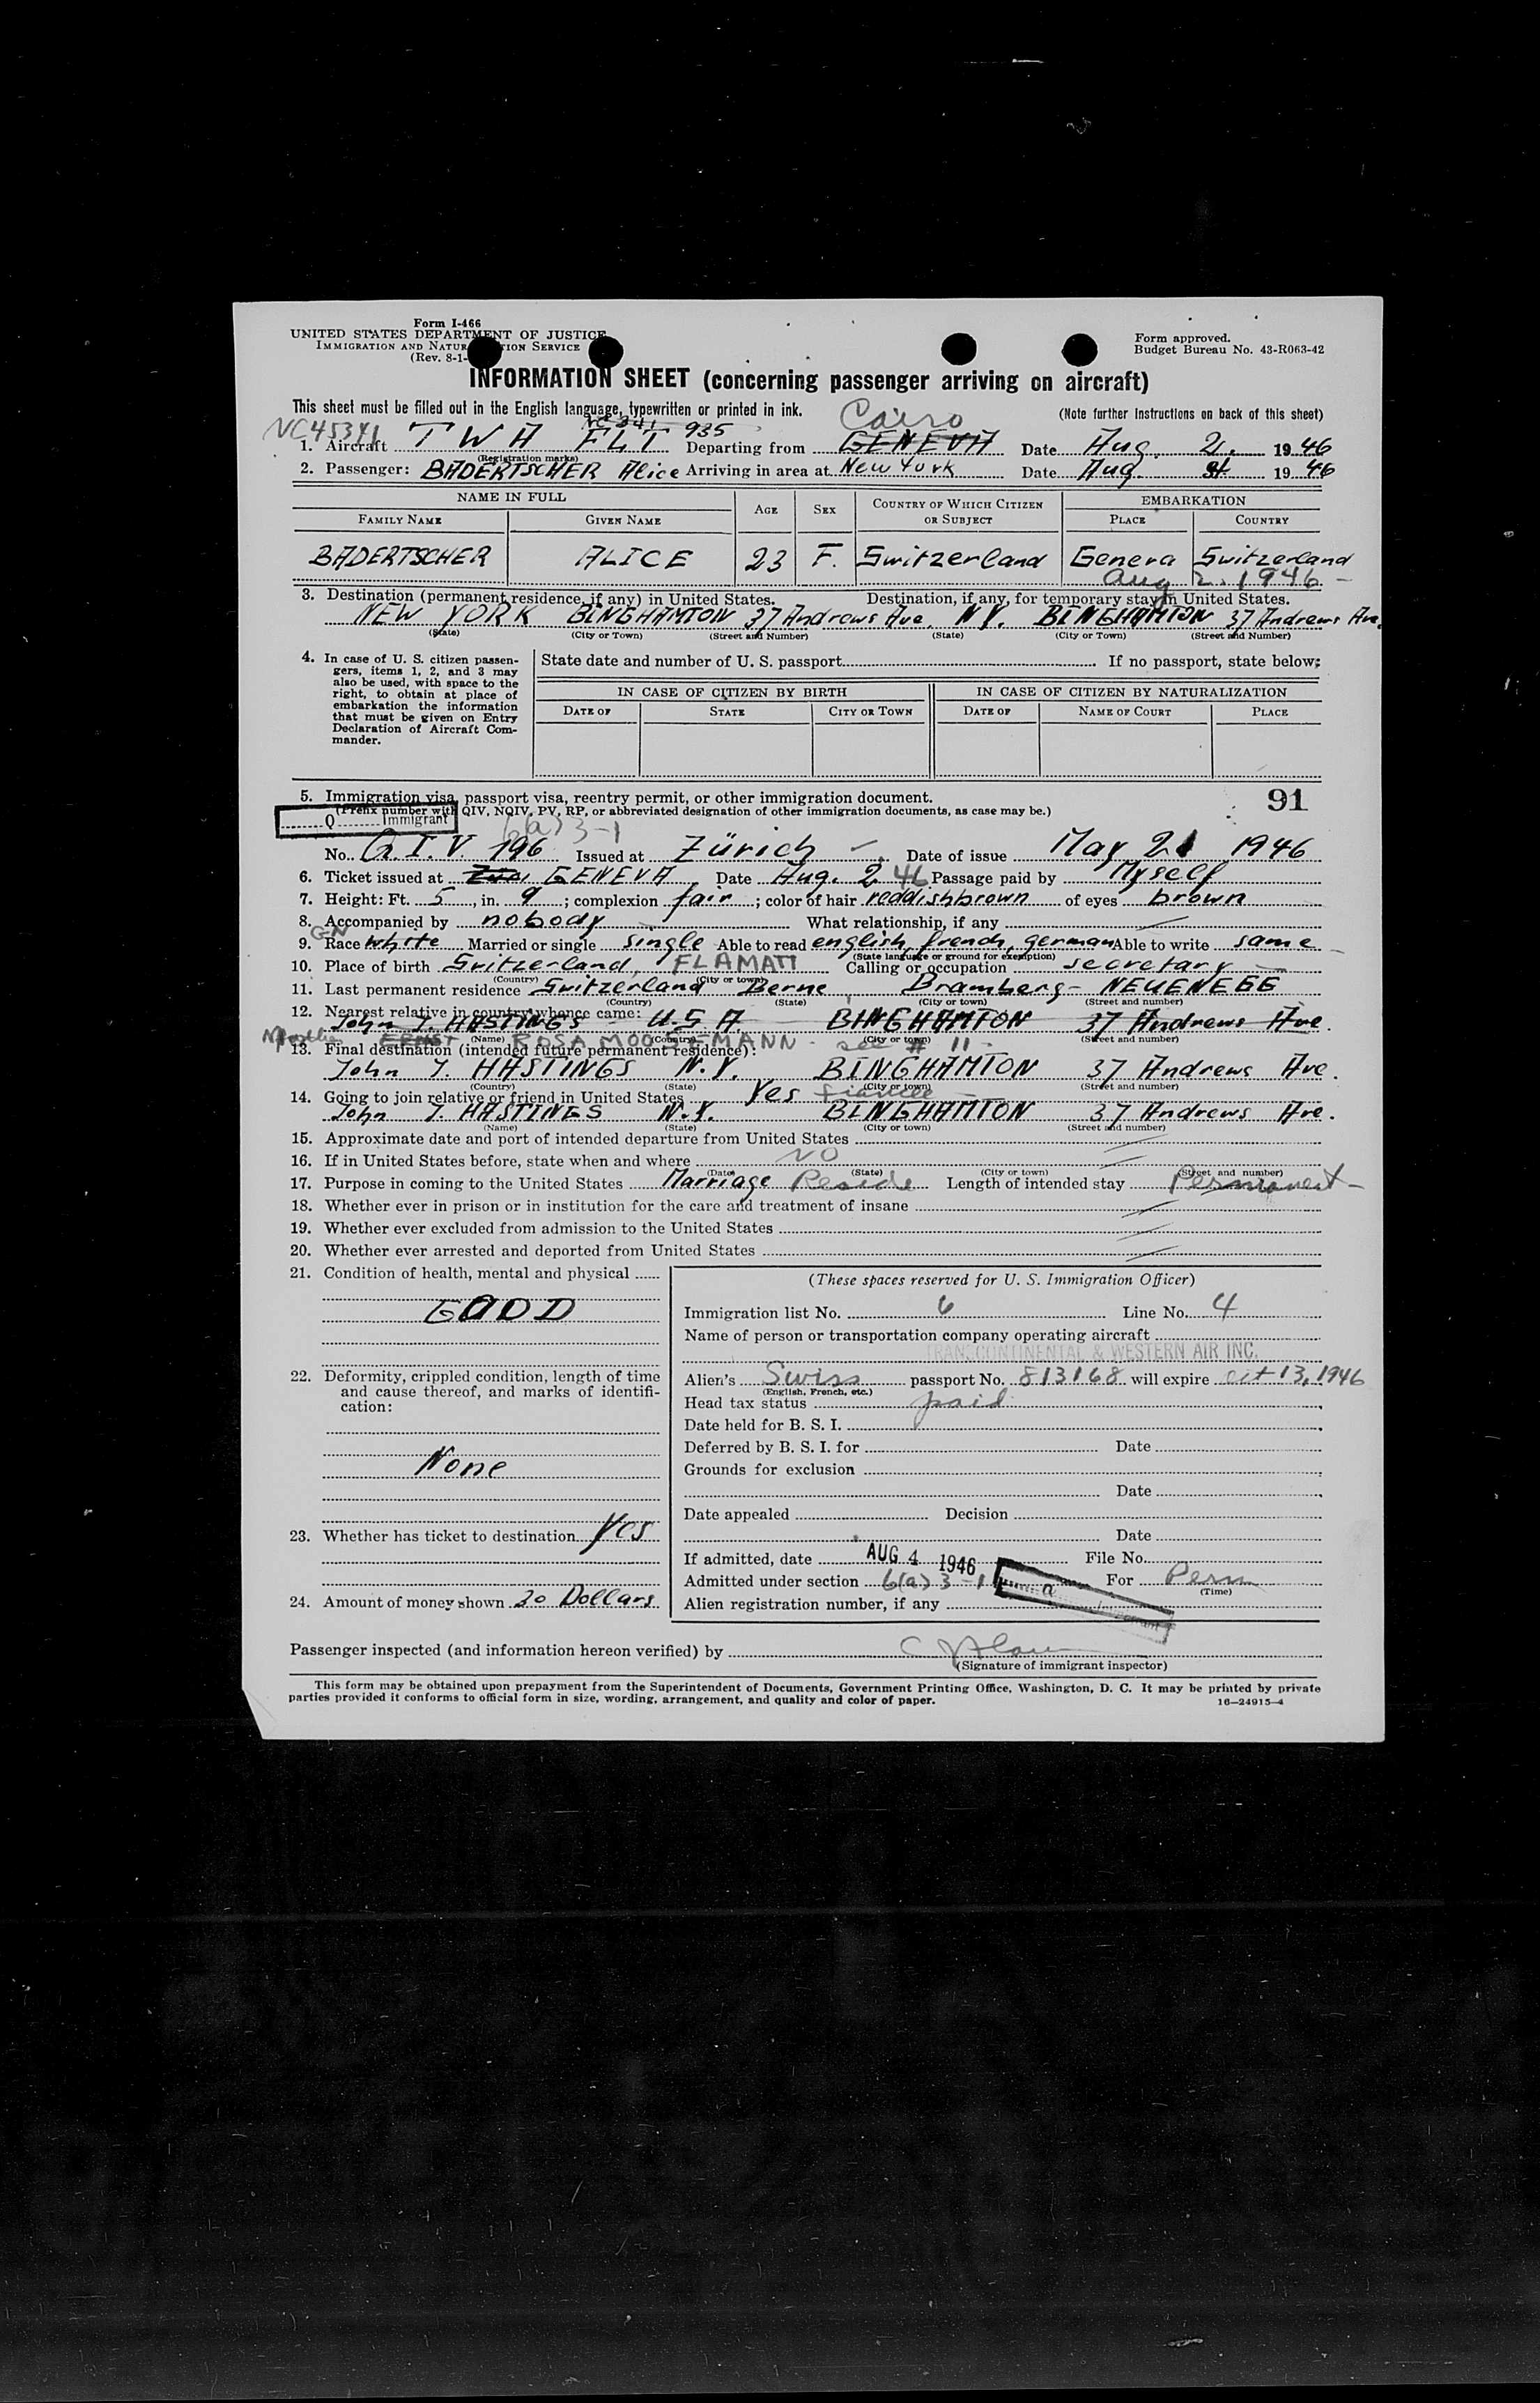 Form I-466
UNITED STATES DEPARTMENT OF JUSTICE
IMMIGRATION AND NATUR TION SERVICE
(Rev. 8-1-
Form approved.
Budget Bureau No. 43-R063-42
INFORMATION SHEET (concerning passenger arriving on aircraft)
This sheet must be filled out in the English language, typewritten or printed in ink.
(Note further instructions on back of this sheet)
NC45341
Cairo
1. Aircraft TWA FLT 935 Departing from GENEVA Date Aug. 2. 1946
(Registration marks)
2. Passenger: BADERTSCHER Alice Arriving in area at New York Date Aug. 1946
NAME IN FULL AGE SEX COUNTRY OF WHICH CITIZEN OR SUBJECT EMBARKATION
FAMILY NAME GIVEN NAME PLACE COUNTRY
BADERTSCHER ALICE 23 F. Switzerland Geneva Switzerland
Aug 2. 1946 -
3. Destination (permanent residence, if any) in United States. Destination, if any, for temporary stay in United States.
NEW YORK BINGHAMTON 37 Andrews Ave. N.Y. BINGHAMTON 37 Andrews Ave.
(State) (City or Town) (Street and Number) (State) (City or Town) (Street and Number)
4. In case of U. S. citizen passen-
gers, items 1, 2, and 3 may
also be used, with space to the
right, to obtain at place of
embarkation the information
that must be given on Entry
Declaration of Aircraft Com-
mander.
State date and number of U. S. passport If no passport, state below:
IN CASE OF CITIZEN BY BIRTH IN CASE OF CITIZEN BY NATURALIZATION
DATE OF STATE CITY OR TOWN DATE OF NAME OF COURT PLACE
5. Immigration visa, passport visa, reentry permit, or other immigration document.
91
(Prefix number with QIV, NQIV, PV, RP, or abbreviated designation of other immigration documents, as case may be.)
Q Immigrant
6(a)3-1
No. Q.I.V. 196 Issued at Zürich - Date of issue May 21 1946
6. Ticket issued at GENEVA Date Aug. 2 46 Passage paid by Myself
7. Height: Ft. 5, in. 9; complexion fair; color of hair reddishbrown of eyes brown
8. Accompanied by nobody What relationship, if any
GN
9. Race white Married or single single Able to read english, french, german Able to write same
(State language or ground for exemption)
10. Place of birth Switzerland, FLAMATT Calling or occupation secretary
(Country) (City or town)
11. Last permanent residence Switzerland Berne Bramberg- NEUENEGG
(Country) (State) (City or town) (Street and number)
12. Nearest relative in country whence came:
John J. HASTINGS - U.S.A. BINGHAMTON 37 Andrews Ave.
(Name) (Country) (City or town) (Street and number)
ERNST ROSA MOOSEMANN - see # 11 -
13. Final destination (intended future permanent residence):
John J. HASTINGS N.Y. BINGHAMTON 37 Andrews Ave.
(Country) (State) (City or town) (Street and number)
14. Going to join relative or friend in United States Yes fiancée
John J. HASTINGS N.Y. BINGHAMTON 37 Andrews Ave.
(Name) (State) (City or town) (Street and number)
15. Approximate date and port of intended departure from United States
16. If in United States before, state when and where NO
(Date) (State) (City or town) (Street and number)
17. Purpose in coming to the United States Marriage Reside Length of intended stay Permanent -
18. Whether ever in prison or in institution for the care and treatment of insane
19. Whether ever excluded from admission to the United States
20. Whether ever arrested and deported from United States
21. Condition of health, mental and physical
GOOD
22. Deformity, crippled condition, length of time
and cause thereof, and marks of identifi-
cation:
None
23. Whether has ticket to destination Yes
24. Amount of money shown 30 Dollars
(These spaces reserved for U. S. Immigration Officer)
Immigration list No. 6 Line No. 4
Name of person or transportation company operating aircraft
TRANSCONTINENTAL & WESTERN AIR INC.
Alien's Swiss passport No. 813168 will expire Oct 13, 1946
(English, French, etc.)
Head tax status paid
Date held for B. S. I.
Deferred by B. S. I. for Date
Grounds for exclusion
Date
Date appealed Decision
Date
If admitted, date AUG 4 1946 File No.
Admitted under section 6(a)3-1 For Perm
(Time)
Alien registration number, if any
Passenger inspected (and information hereon verified) by
(Signature of immigrant inspector)
This form may be obtained upon prepayment from the Superintendent of Documents, Government Printing Office, Washington, D. C. It may be printed by private
parties provided it conforms to official form in size, wording, arrangement, and quality and color of paper. 16—24915-4